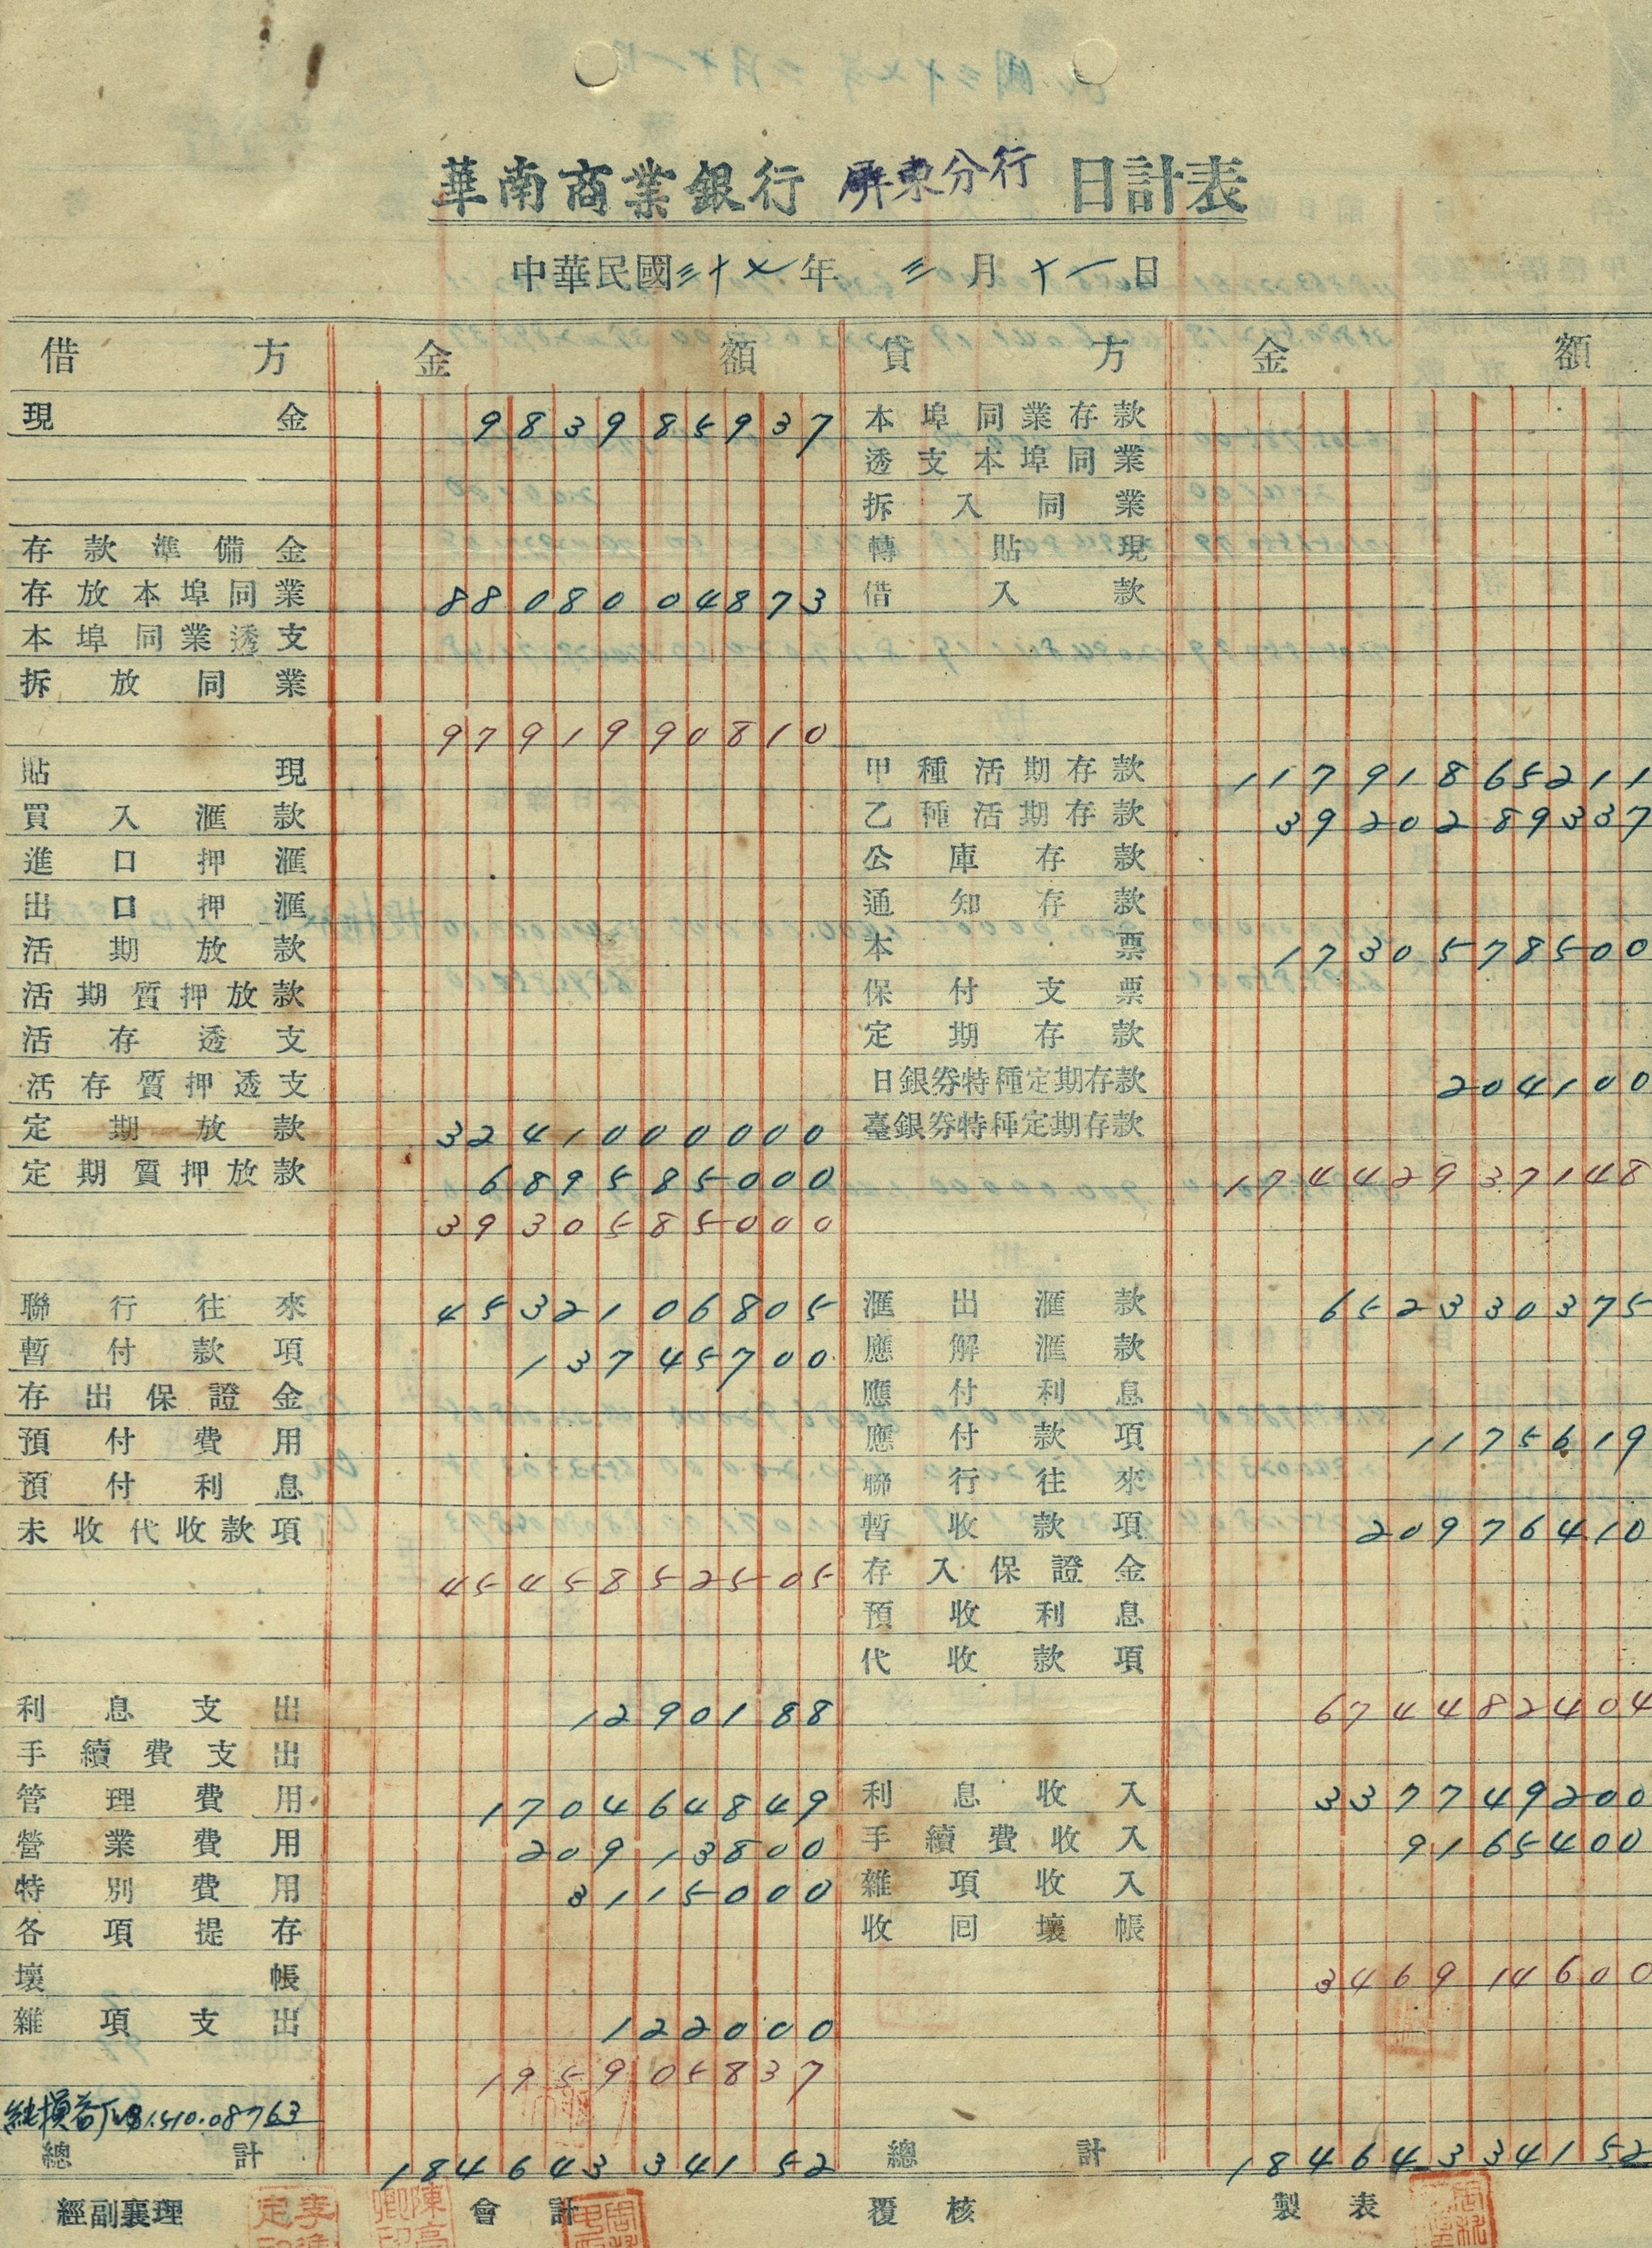 華南商業銀行 屏東分行 日計表
中華民國三十七年 三月十一日
借方 金額 貸方 金額
現金 983985937 本埠同業存款
透支本埠同業
拆入同業
存款準備金 轉貼現
存放本埠同業 8808004873 借入款
本埠同業透支
拆放同業
9791990810
貼現 甲種活期存款 11791865211
買入滙款 乙種活期存款 3920289337
進口押滙 公庫存款
出口押滙 通知存款
活期放款 本票 1730578500
活期質押放款 保付支票
活存透支 定期存款
活存質押透支 日銀券特種定期存款 204100
定期放款 3241000000 臺銀券特種定期存款
定期質押放款 689585000 17442937148
3930585000
聯行往來 4532106805 滙出滙款 652330375
暫付款項 13745700 應解滙款
存出保證金 應付利息
預付費用 應付款項 1175619
預付利息 聯行往來
未收代收款項 暫收款項 20976410
4545852505 存入保證金
預收利息
代收款項
利息支出 1290188 674482404
手續費支出
管理費用 170464849 利息收入 337749200
營業費用 20913800 手續費收入 9165400
特別費用 3115000 雜項收入
各項提存 收回壞帳
壞帳 346914600
雜項支出 122000
195905837
純損益 1.510.08763
總計 18464334152 總計 18464334152
經副襄理 會計 覆核 製表